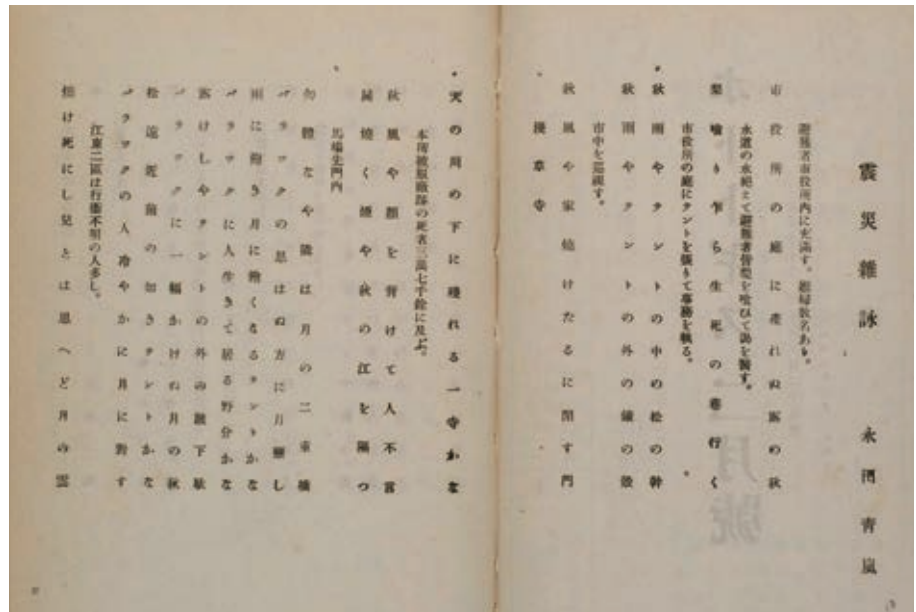 震災雜詠
永田青嵐
避難者市役所内に充滿す。姙婦數名あり。
市役所の庭に產れぬ露の秋
水道の水絕えて避難者皆梨を喰ひて渴を醫す。
梨喰り乍ら生死の巷行く
市役所の庭にテントを張りて事務を執る。
秋雨やテントの中の松の幹
秋雨やテントの外の
市中を巡視す。
秋風や家燒けたるに閉す門
淺草寺
天の川の下に殘れる一寺かな
本所被服廠跡の死者三萬七千餘に及ぶ。
秋風や顏を背けて人不言
屍燒く煙や秋の江を隔つ
馬場先門内
勿體なや隣は月の二重橋
バラックの思はぬ方に月
雨に飽き月に飽くなるテントかな
バラックに人生きて居る野分かな
露けしやテントの外の
バラックに一幅かけぬ月の秋
松遠近
の如きテントかな
バラックの人冷やかに月に對す
江東二區は行衞不明の人多し。
燒け死にし兒とは思へど月の雲